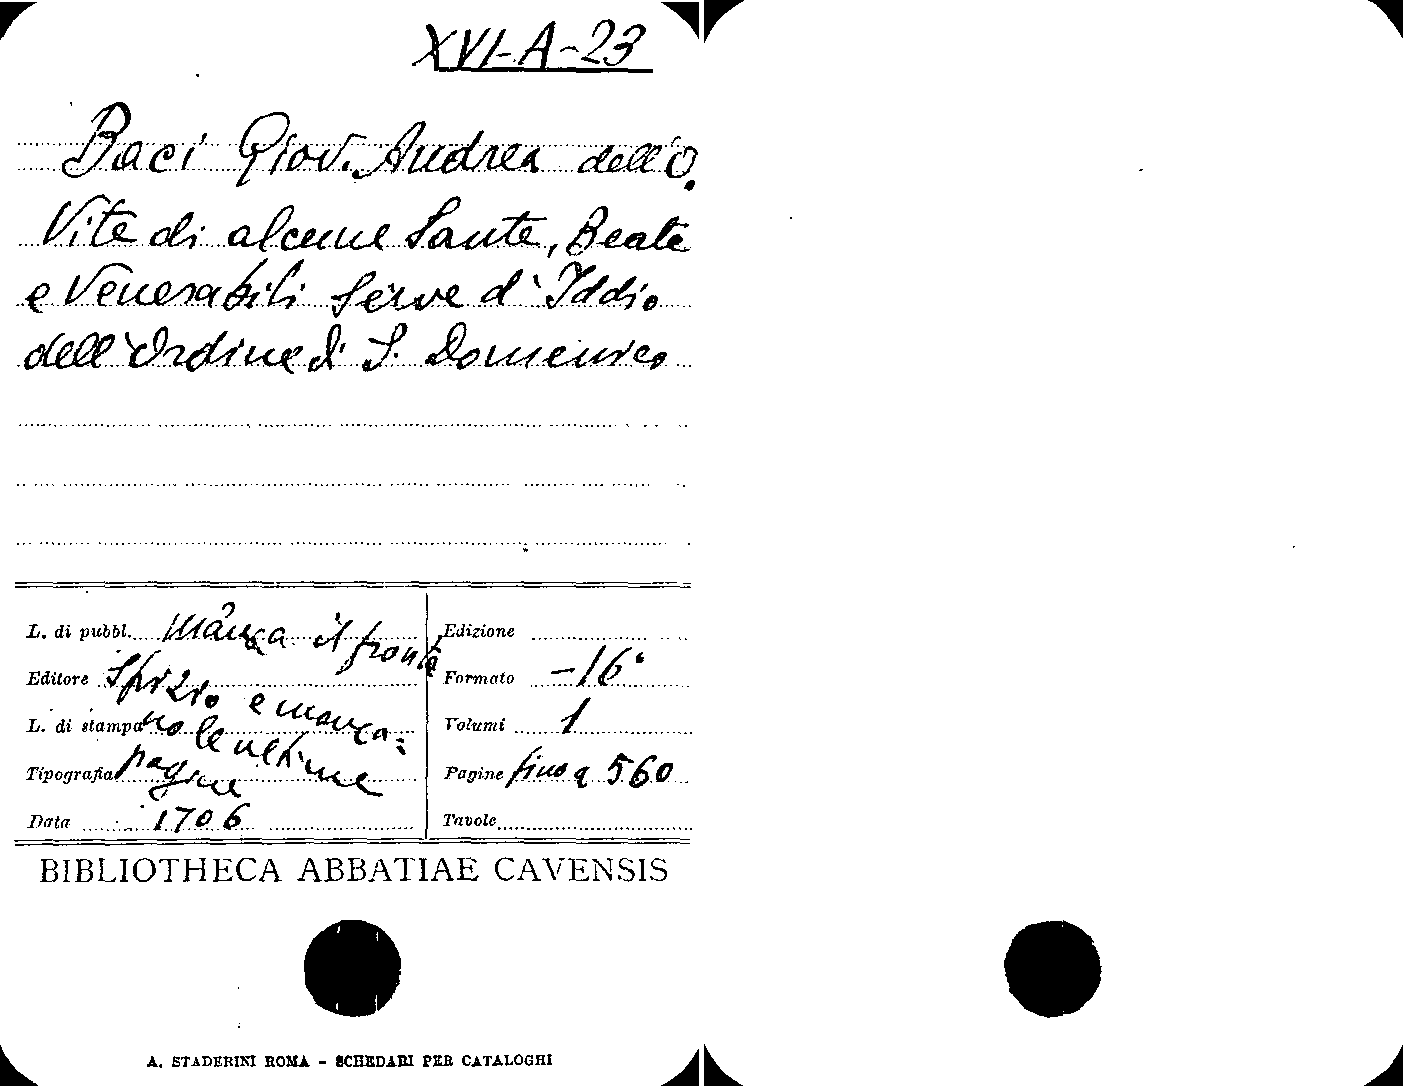 XVI-A-23
Baci Giov. Andrea dell'O.
Vite di alcune Sante, Beate
e Venerabili Serve d'Iddio
dell'Ordine di S. Domenico
L. di pubbl. manca il fronte
Editore Spizio e manca=
L. di stampa no le ultime
Tipografia pagine
Data 1706
Edizione
Formato -16°
Volumi 1
Pagine fino a 560
Tavole
BIBLIOTHECA ABBATIAE CAVENSIS
A. STADERINI ROMA - SCHEDARI PER CATALOGHI